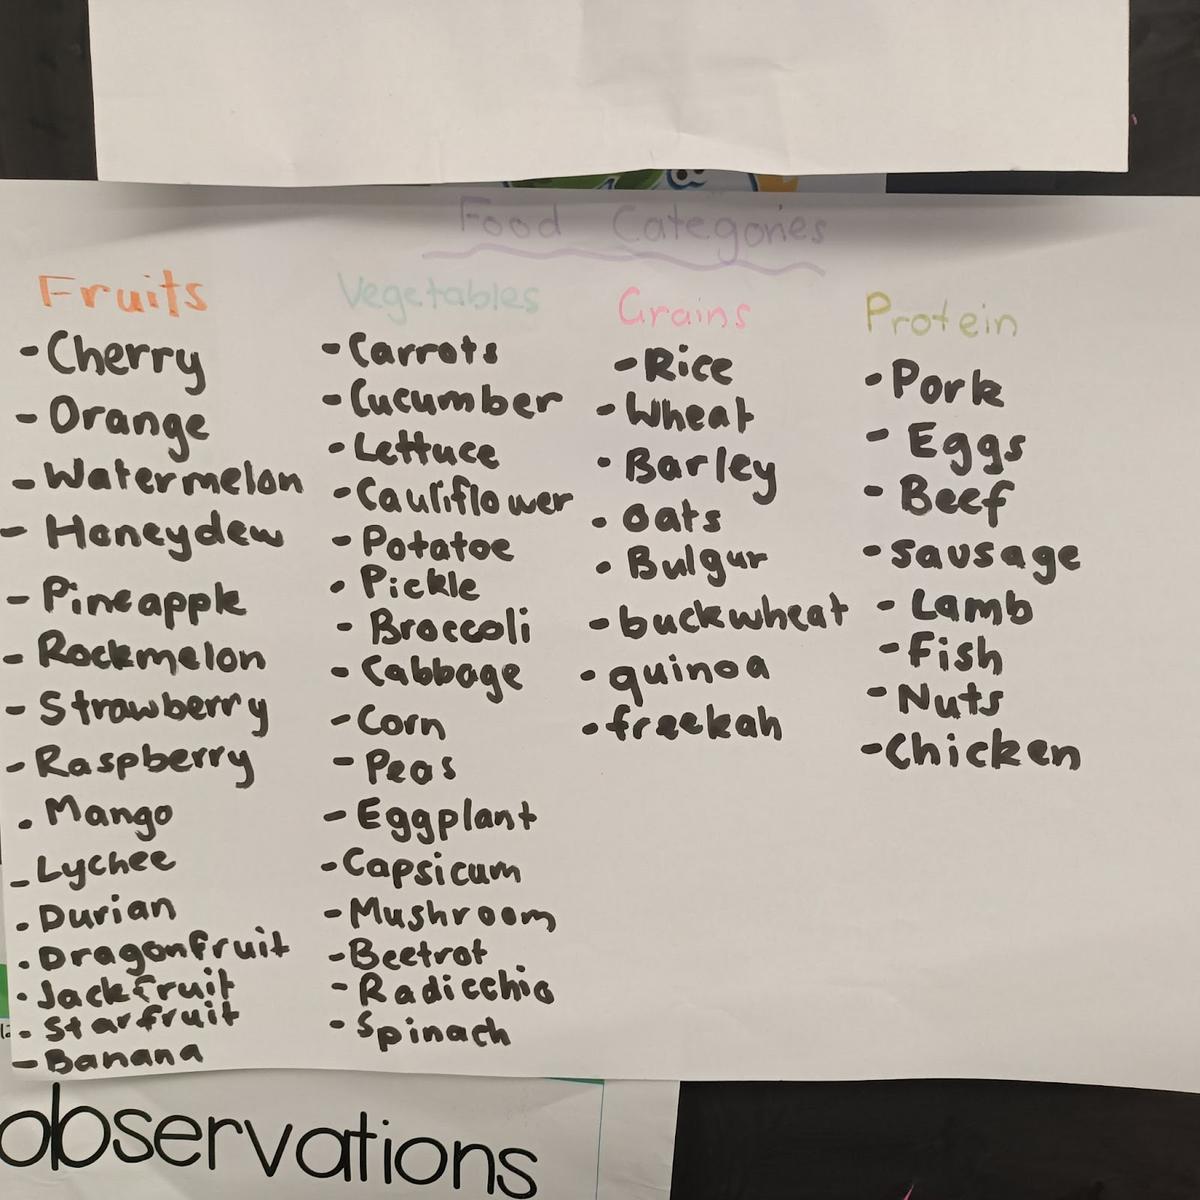 Food Categories
Fruits
- Cherry
- Orange
- Watermelon
- Honeydew
- Pineapple
- Rockmelon
- Strawberry
- Raspberry
- Mango
- Lychee
- Durian
- Dragonfruit
- Jackfruit
- Starfruit
- Banana
Vegetables
- Carrots
- Cucumber
- Lettuce
- Cauliflower
- Potatoe
- Pickle
- Broccoli
- Cabbage
- Corn
- Peas
- Eggplant
- Capsicum
- Mushroom
- Beetrot
- Radicchio
- Spinach
Grains
- Rice
- Wheat
- Barley
- Oats
- Bulgur
- buckwheat
- quinoa
- freekah
Protein
- Pork
- Eggs
- Beef
- Sausage
- Lamb
- Fish
- Nuts
- Chicken
observations